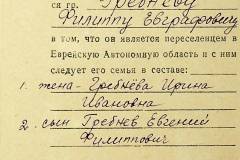 ся гр. Гребневу
Филиппу Евграфовичу
в том, что он является переселенцем в
Еврейскую Автономную область и с ним
следует его семья в составе:
1. жена - Гребнёва Ирина
Ивановна
2. сын Гребнев Евгений
Филиппович